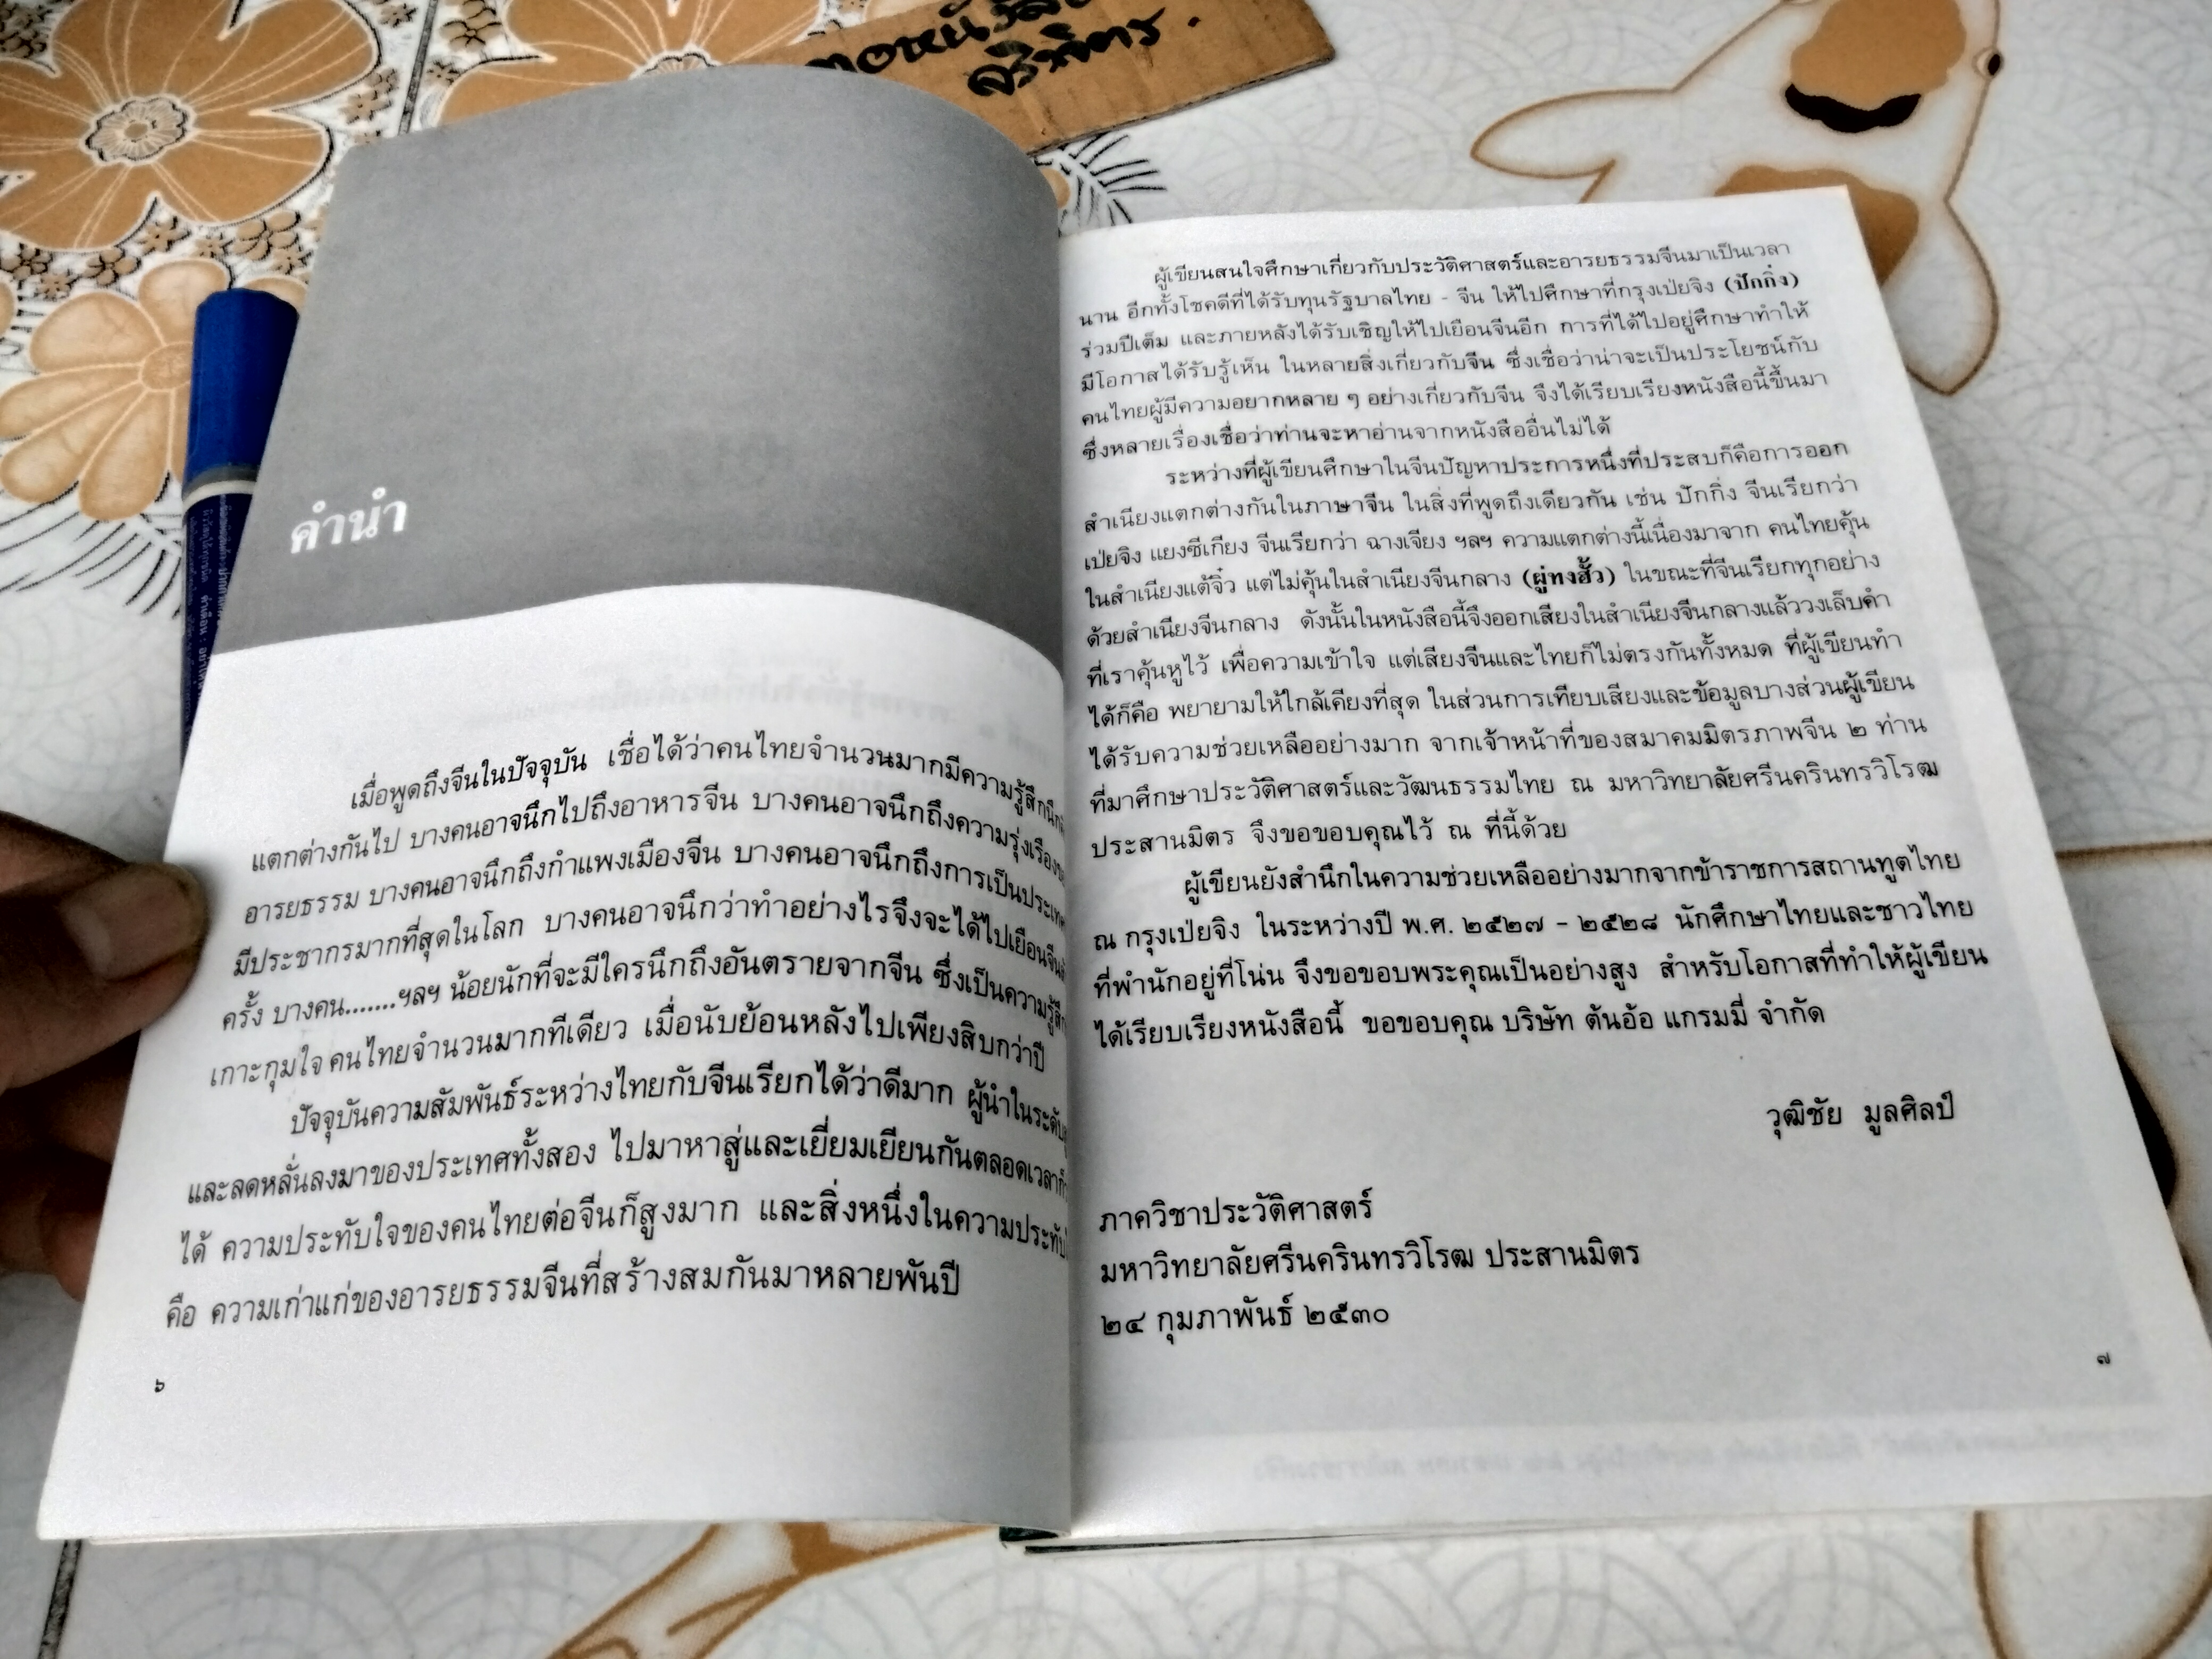 ศรีพิตร.
คำนำ
เมื่อพูดถึงจีนในปัจจุบัน เชื่อได้ว่าคนไทยจำนวนมากมีความรู้สึกนึก
แตกต่างกันไป บางคนอาจนึกไปถึงอาหารจีน บางคนอาจนึกถึงความรุ่งเรือง
อารยธรรม บางคนอาจนึกถึงกำแพงเมืองจีน บางคนอาจนึกถึงการเป็นประเท
มีประชากรมากที่สุดในโลก บางคนอาจนึกว่าทำอย่างไรจึงจะได้ไปเยือนจีน
ครั้ง บางคน.......ฯลฯ น้อยนักที่จะมีใครนึกถึงอันตรายจากจีน ซึ่งเป็นความรู้สึก
เกาะกุมใจ คนไทยจำนวนมากทีเดียว เมื่อนับย้อนหลังไปเพียงสิบกว่าปี
ปัจจุบันความสัมพันธ์ระหว่างไทยกับจีนเรียกได้ว่าดีมาก ผู้นำในระดับ
และลดหลั่นลงมาของประเทศทั้งสอง ไปมาหาสู่และเยี่ยมเยียนกันตลอดเวลาก็
ได้ ความประทับใจของคนไทยต่อจีนก็สูงมาก และสิ่งหนึ่งในความประทับ
คือ ความเก่าแก่ของอารยธรรมจีนที่สร้างสมกันมาหลายพันปี
๖
ผู้เขียนสนใจศึกษาเกี่ยวกับประวัติศาสตร์และอารยธรรมจีนมาเป็นเวลา
นาน อีกทั้งโชคดีที่ได้รับทุนรัฐบาลไทย - จีน ให้ไปศึกษาที่กรุงเป่ยจิง (ปักกิ่ง)
ร่วมปีเต็ม และภายหลังได้รับเชิญให้ไปเยือนจีนอีก การที่ได้ไปอยู่ศึกษาทำให้
มีโอกาสได้รับรู้เห็น ในหลายสิ่งเกี่ยวกับจีน ซึ่งเชื่อว่าน่าจะเป็นประโยชน์กับ
คนไทยผู้มีความอยากหลาย ๆ อย่างเกี่ยวกับจีน จึงได้เรียบเรียงหนังสือนี้ขึ้นมา
ซึ่งหลายเรื่องเชื่อว่าท่านจะหาอ่านจากหนังสืออื่นไม่ได้
ระหว่างที่ผู้เขียนศึกษาในจีนปัญหาประการหนึ่งที่ประสบก็คือการออก
สำเนียงแตกต่างกันในภาษาจีน ในสิ่งที่พูดถึงเดียวกัน เช่น ปักกิ่ง จีนเรียกว่า
เป่ยจิง แยงซีเกียง จีนเรียกว่า ฉางเจียง ฯลฯ ความแตกต่างนี้เนื่องมาจาก คนไทยคุ้น
ในสำเนียงแต้จิ๋ว แต่ไม่คุ้นในสำเนียงจีนกลาง (ผู่ทงฮั้ว) ในขณะที่จีนเรียกทุกอย่าง
ด้วยสำเนียงจีนกลาง ดังนั้นในหนังสือนี้จึงออกเสียงในสำเนียงจีนกลางแล้ววงเล็บคำ
ที่เราคุ้นหูไว้ เพื่อความเข้าใจ แต่เสียงจีนและไทยก็ไม่ตรงกันทั้งหมด ที่ผู้เขียนทำ
ได้ก็คือ พยายามให้ใกล้เคียงที่สุด ในส่วนการเทียบเสียงและข้อมูลบางส่วนผู้เขียน
ได้รับความช่วยเหลืออย่างมาก จากเจ้าหน้าที่ของสมาคมมิตรภาพจีน ๒ ท่าน
ที่มาศึกษาประวัติศาสตร์และวัฒนธรรมไทย ณ มหาวิทยาลัยศรีนครินทรวิโรฒ
ประสานมิตร จึงขอขอบคุณไว้ ณ ที่นี้ด้วย
ผู้เขียนยังสำนึกในความช่วยเหลืออย่างมากจากข้าราชการสถานทูตไทย
ณ กรุงเป่ยจิง ในระหว่างปี พ.ศ. ๒๕๒๗ - ๒๕๒๘ นักศึกษาไทยและชาวไทย
ที่พำนักอยู่ที่โน่น จึงขอขอบพระคุณเป็นอย่างสูง สำหรับโอกาสที่ทำให้ผู้เขียน
ได้เรียบเรียงหนังสือนี้ ขอขอบคุณ บริษัท ต้นอ้อ แกรมมี่ จำกัด
วุฒิชัย มูลศิลป์
ภาควิชาประวัติศาสตร์
มหาวิทยาลัยศรีนครินทรวิโรฒ ประสานมิตร
๒๔ กุมภาพันธ์ ๒๕๓๐
๗